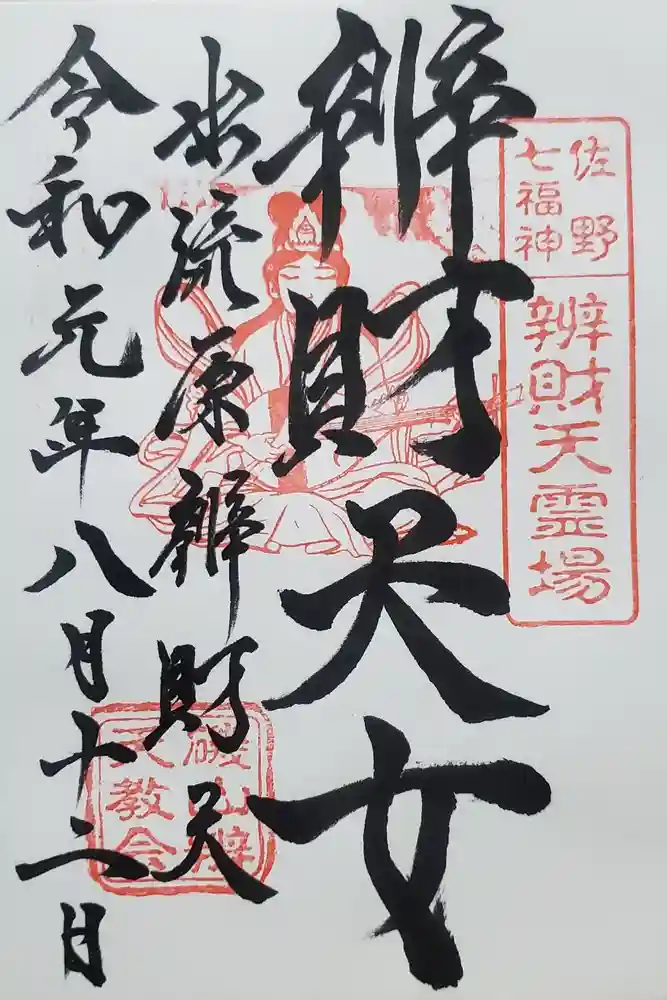 佐野
七福神
辨財天霊場
辨財天女
出流原辨財天
令和元年八月十二日
磯山辨
天教会